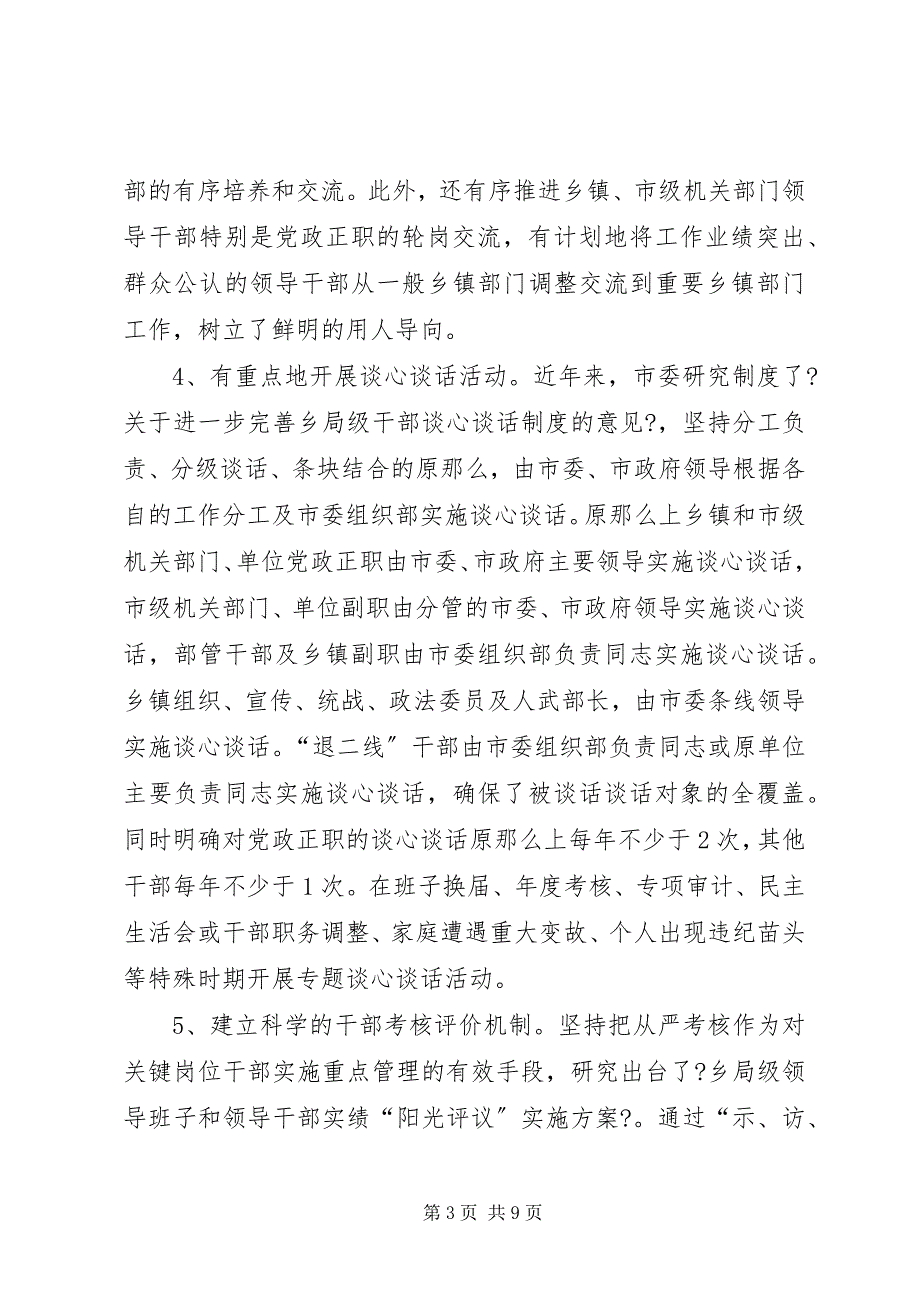 部的有序培养和交流。此外，还有序推进乡镇、市级机关部门领
导干部特别是党政正职的轮岗交流，有计划地将工作业绩突出、
群众公认的领导干部从一般乡镇部门调整交流到重要乡镇部门
工作，树立了鲜明的用人导向。
4、有重点地开展谈心谈话活动。近年来，市委研究制度了?
关于进一步完善乡局级干部谈心谈话制度的意见?，坚持分工负
责、分级谈话、条块结合的原那么，由市委、市政府领导根据各
自的工作分工及市委组织部实施谈心谈话。原那么上乡镇和市级
机关部门、单位党政正职由市委、市政府主要领导实施谈心谈话，
市级机关部门、单位副职由分管的市委、市政府领导实施谈心谈
话，部管干部及乡镇副职由市委组织部负责同志实施谈心谈话。
乡镇组织、宣传、统战、政法委员及人武部长，由市委条线领导
实施谈心谈话。“退二线〞干部由市委组织部负责同志或原单位
主要负责同志实施谈心谈话，确保了被谈话谈话对象的全覆盖。
同时明确对党政正职的谈心谈话原那么上每年不少于 2 次，其他
干部每年不少于 1 次。在班子换届、年度考核、专项审计、民主
生活会或干部职务调整、家庭遭遇重大变故、个人出现违纪苗头
等特殊时期开展专题谈心谈话活动。
5、建立科学的干部考核评价机制。坚持把从严考核作为对
关键岗位干部实施重点管理的有效手段，研究出台了?乡局级领
导班子和领导干部实绩“阳光评议〞实施方案?。通过“示、访、
第 3 页 共 9 页